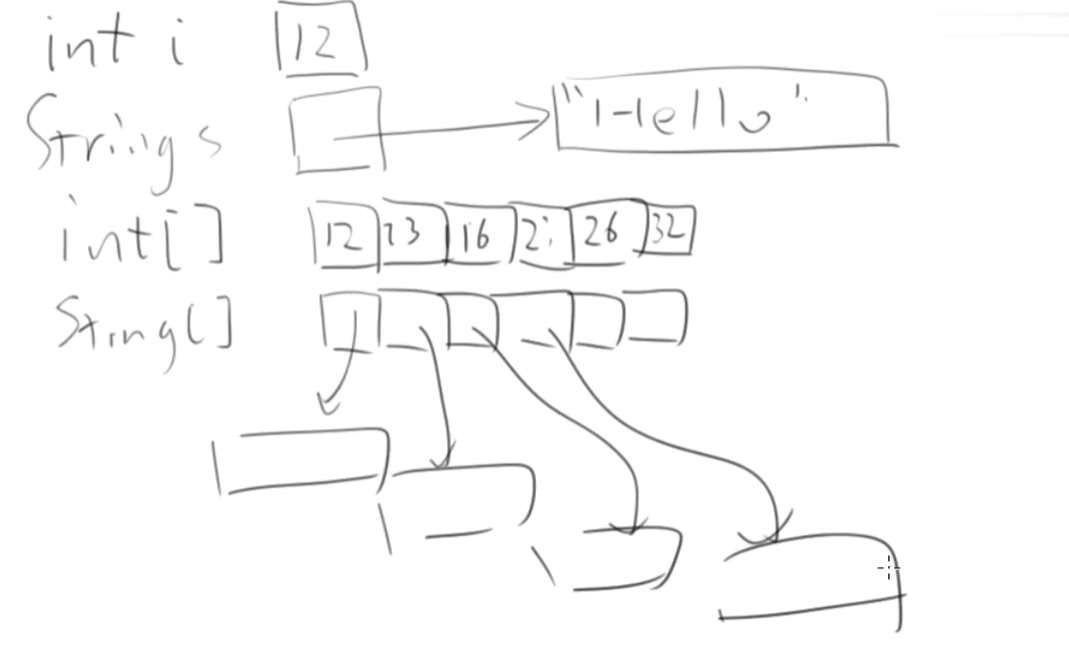 int i 12
String s "Hello"
int[] 12 23 16 26 32
String[]